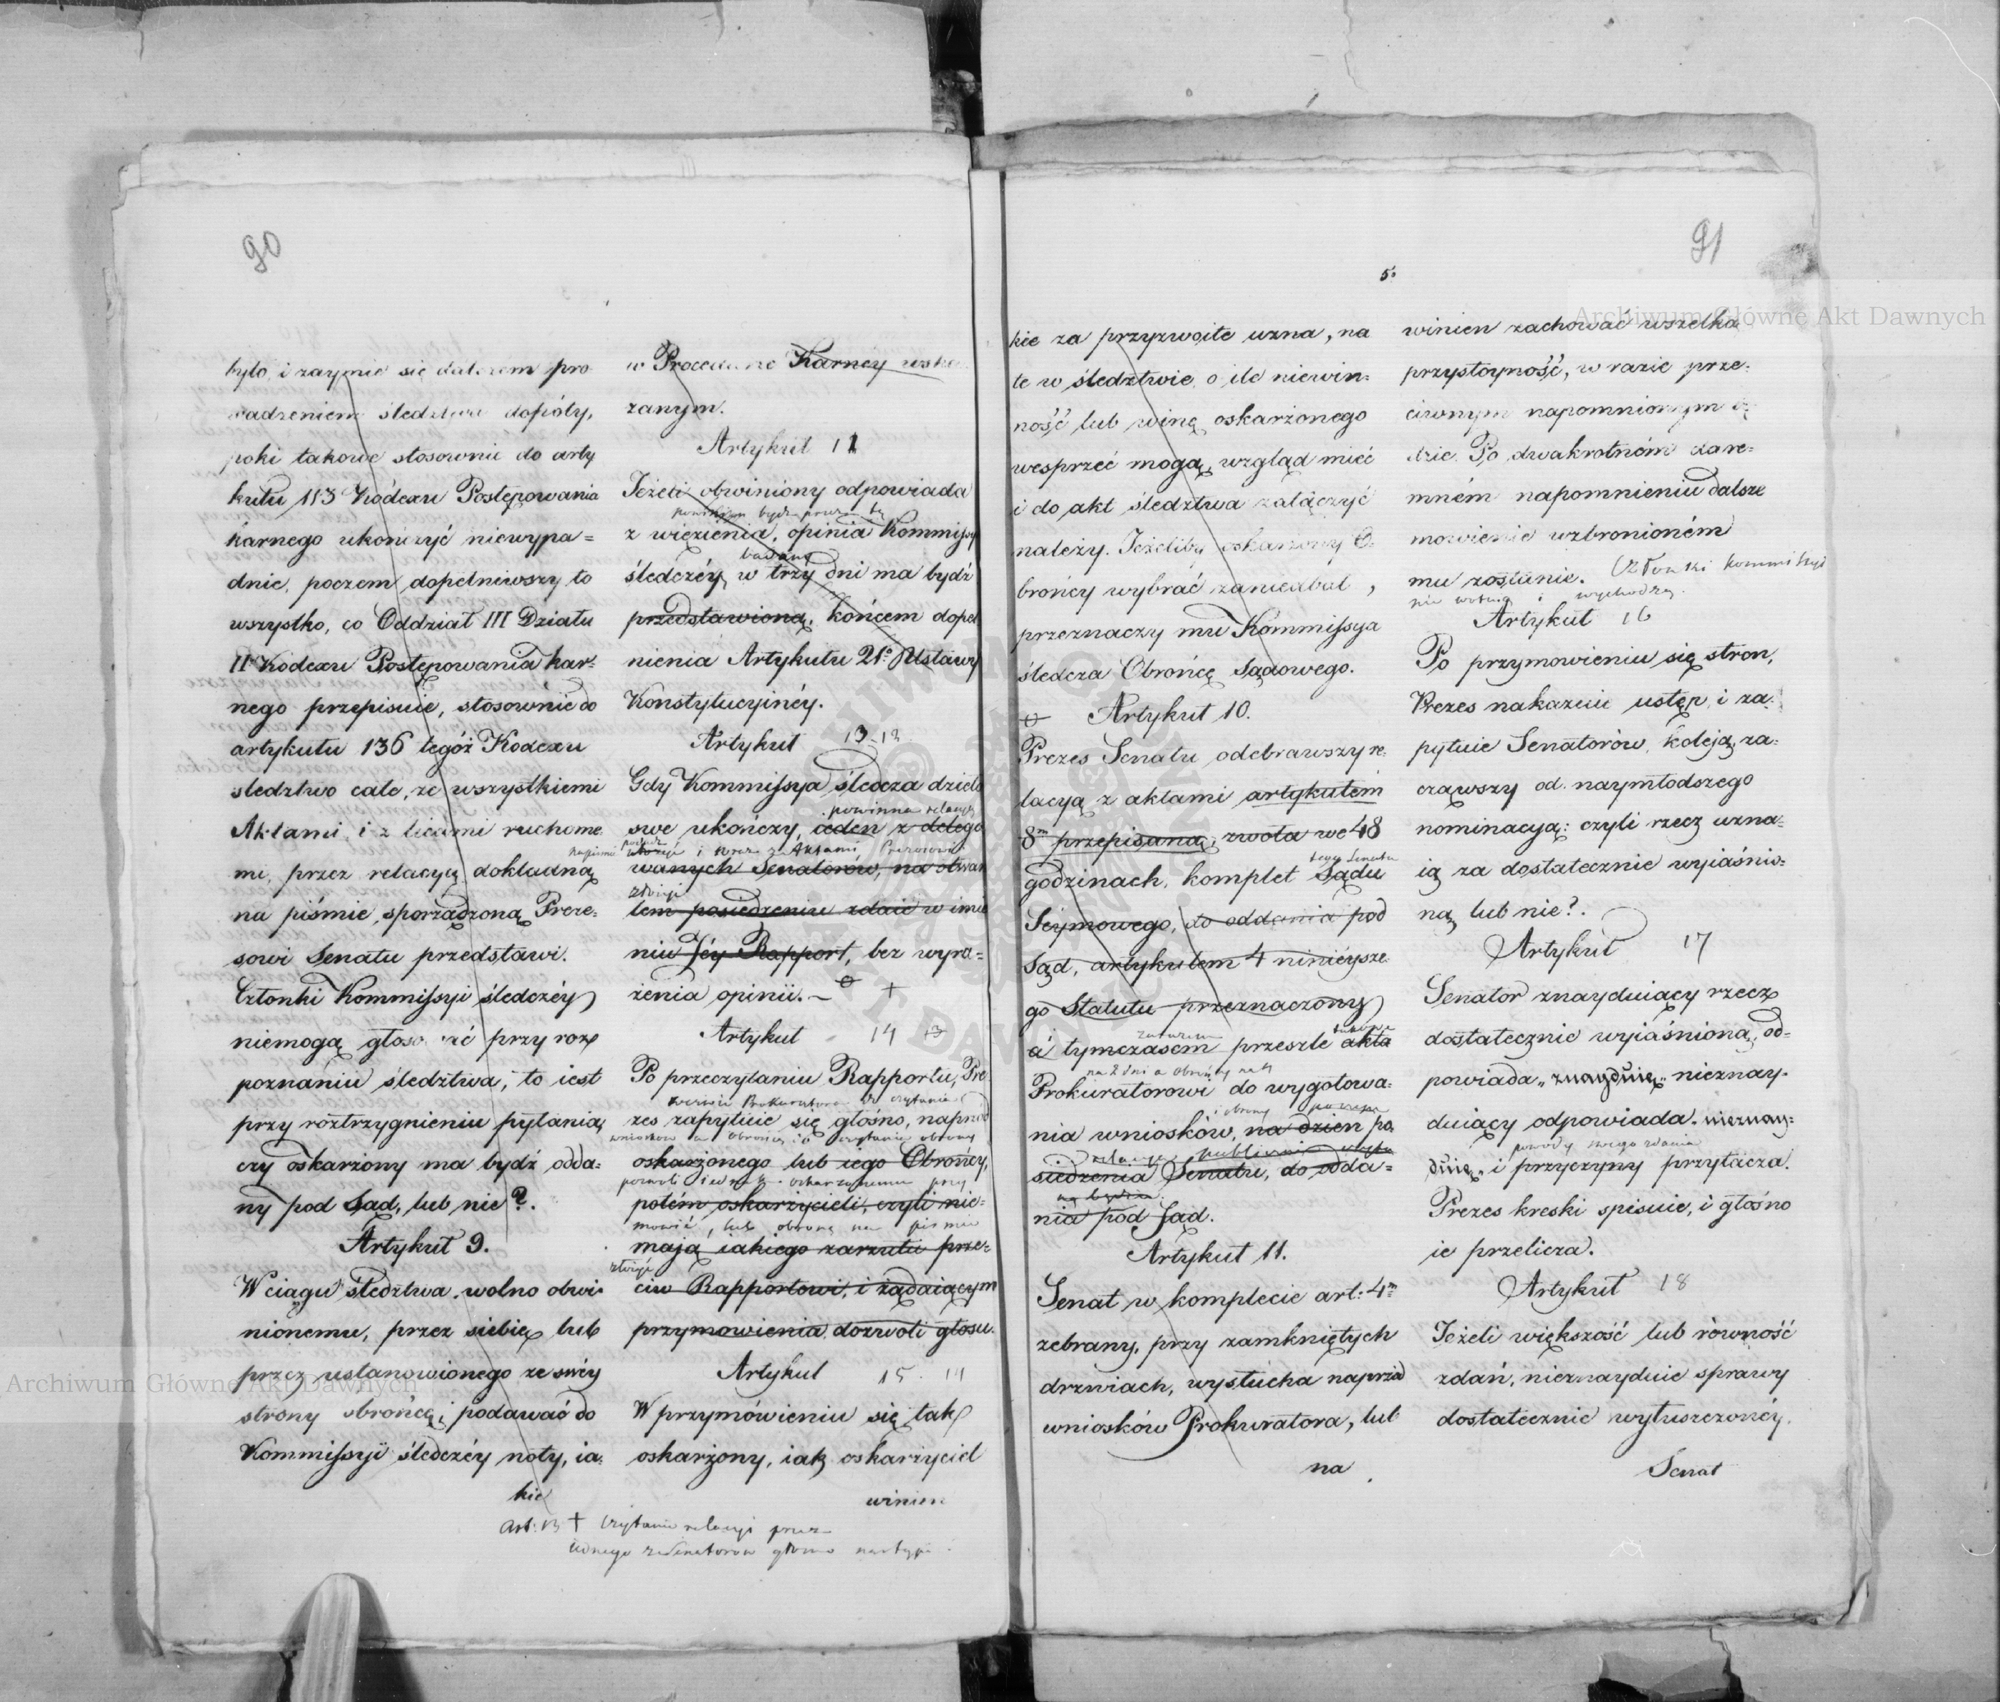 90
było, i zaymie się dalszem pro
wadzeniem śledztwa dopóty,
poki takowe stosownie do arty
kułu 113 Kodexu Postępowania
karnego ukończyć niewypa=
dnie, poczem dopełniwszy to
wszystko, co Oddział III Działu
II Kodexu Postępowania kar=
nego przepisuie, stosownie do
artykułu 136 tegóż Kodexu
śledztwo całe, ze wszystkiemi
Aktami, i z licami ruchome
mi, przez relacyą dokładną
na piśmie, sporządzoną Preze=
sowi Senatu przedstawi.
Członki Kommissyi śledczéy
niemogą głosować przy roz
poznaniu śledztwa, to iest
przy roztrzygnieniu pytania,
czy oskarżony ma bydź odda=
ny pod Sąd, lub nie?.
Artykuł 9.
W ciągu śledztwa, wolno obwi=
nionemu, przez siebie lub
przez ustanowionego ze swéy
strony obrońcę, podawać do
Kommissyi śledczéy noty, ia=
kie
w Procedurze Karnéy wska
zanym.
Artykuł 12
Jeżeli obwiniony odpowiada
powinien bydź przez tę
z więzienia, opinia Kommissyi
badany
śledczéy w trzy dni ma bydź
przedstawioną, końcem dopeł
nienia Artykułu 21º Ustawy
Konstytucyinéy.
Artykuł 13
Gdy Kommissya śledcza dzieło
powinna relacyą
swe ukończy, ieden z delego
napisać i wraz z Aktami Prezesowi
wanych Senatorów, na otwar
złożyć
tem posiedzeniu zdaie w imie
niu Jéy Rapport, bez wyra=
żenia opinii. +
Artykuł 14
Po przeczytaniu Rapportu, Pre
zes zapytuie się głośno, naprzód
wniosków a Obrońcę do czytania obrony
oskarżonego lub iego Obrońcy,
potém oskarżycieli, czyli nie=
mówić, lub obronę na piśmie
maią iakiego zarzutu prze=
złożyć
ciw Rapportowi, i żądaiącym
przymowienia dozwoli głosu.
Artykuł 15. 14
W przymówieniu się tak
oskarżony, iak oskarżyciel
winien
Art: 13 + Czytanie relacyi przez
iednego z Senatorów głośno nastąpi.
91
5.
kie za przyzwoite uzna, na
te w śledztwie o ile niewin=
ność lub winę oskarżonego
wesprzeć mogą, wzgląd mieć
i do akt śledztwa załączyć
należy. Jeżeliby oskarżony O=
brońcy wybrać zaniedbał,
przeznaczy mu Kommissya
śledcza Obrońcę Sądowego.
Artykuł 10.
Prezes Senatu odebrawszy re=
lacyą z aktami artykułem
8m przepisaną, zwoła we 48
tego Senatu
godzinach, komplet Sądu
Seymowego, do oddania pod
Sąd, artykułem 4 ninieysze
go Statutu przeznaczony
á tymczasem przeszle akta
na 2 dni a Obrońcy na 4
Prokuratorowi do wygotowa=
i obrony
nia wniosków, na dzień po
siedzenia Senatu, do odda=
nia pod Sąd.
Artykuł 11.
Senat w komplecie art: 4m
zebrany, przy zamkniętych
drzwiach, wysłucha naprzód
wniosków Prokuratora, lub
na
winien zachować wszelką
przystoyność, w razie prze=
ciwnym napomnionym bę
dzie. Po dwakrotném dare=
mném napomnieniu dalsze
mowienie wzbronioném
mu zostanie. Członki Kommissyi
nie wotuią i wychodzą.
Artykuł 16
Po przymowieniu się stron,
Prezes nakazuie ustęp i za=
pytuie Senatorów koleją, za=
cząwszy od naymłodszego
nominacyą: czyli rzecz uzna=
ią za dostatecznie wyiaśnio=
ną lub nie?.
Artykuł 17
Senator znayduiący rzecz
dostatecznie wyiaśnioną, od=
powiada „znayduię" nieznay=
duiący odpowiada „nieznay=
powody swego zdania
duię" i przyczyny przytacza.
Prezes kreski spisuie, i głośno
ie przelicza.
Artykuł 18
Jeżeli większość lub równość
zdań, nieznayduie sprawy
dostatecznie wyłuszczonéy,
Senat
Archiwum Główne Akt Dawnych
Archiwum Główne Akt Dawnych